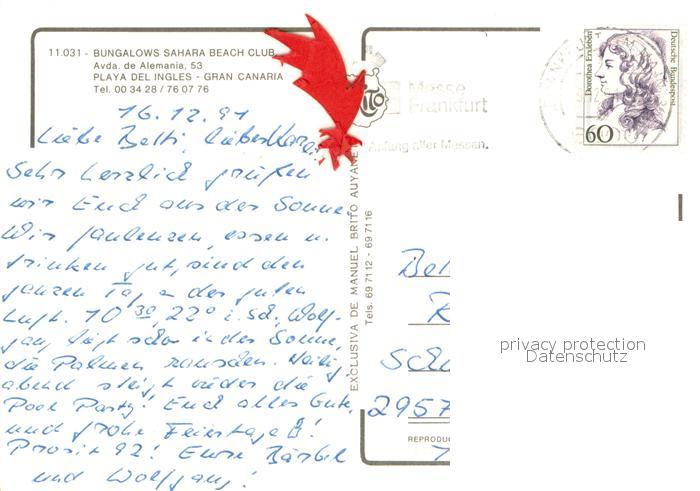 11.031 - BUNGALOWS SAHARA BEACH CLUB
Avda. de Alemania, 53
PLAYA DEL INGLES - GRAN CANARIA
Tel. 00 34 28 / 76 07 76
16.12.91
Liebe Betti, lieber
Sehr herzlich grüßen
wir Euch aus der Sonne.
Wir faulenzen, essen u.
trinken gut, sind den
ganzen Tag a der guten
Luft. 10 30, 22° i. Sch, Wolf-
gang liegt schon in der Sonne,
die Palmen rauschen. Heilig
abend steigt wieder die
Pool Party! Euch alles Gute,
und frohe Feiertage!
Prosit 92! Eure Bärbel
und Wolfgang!
EXCLUSIVA DE MANUEL BRITO AUYANE
Tels. 69 7112 - 69 7116
Messe
Frankfurt
Anfang aller Messen.
Dorothea Erxleben
Deutsche Bundespost
60
Be
R
Sch
2957
REPRODUC
privacy protection
Datenschutz